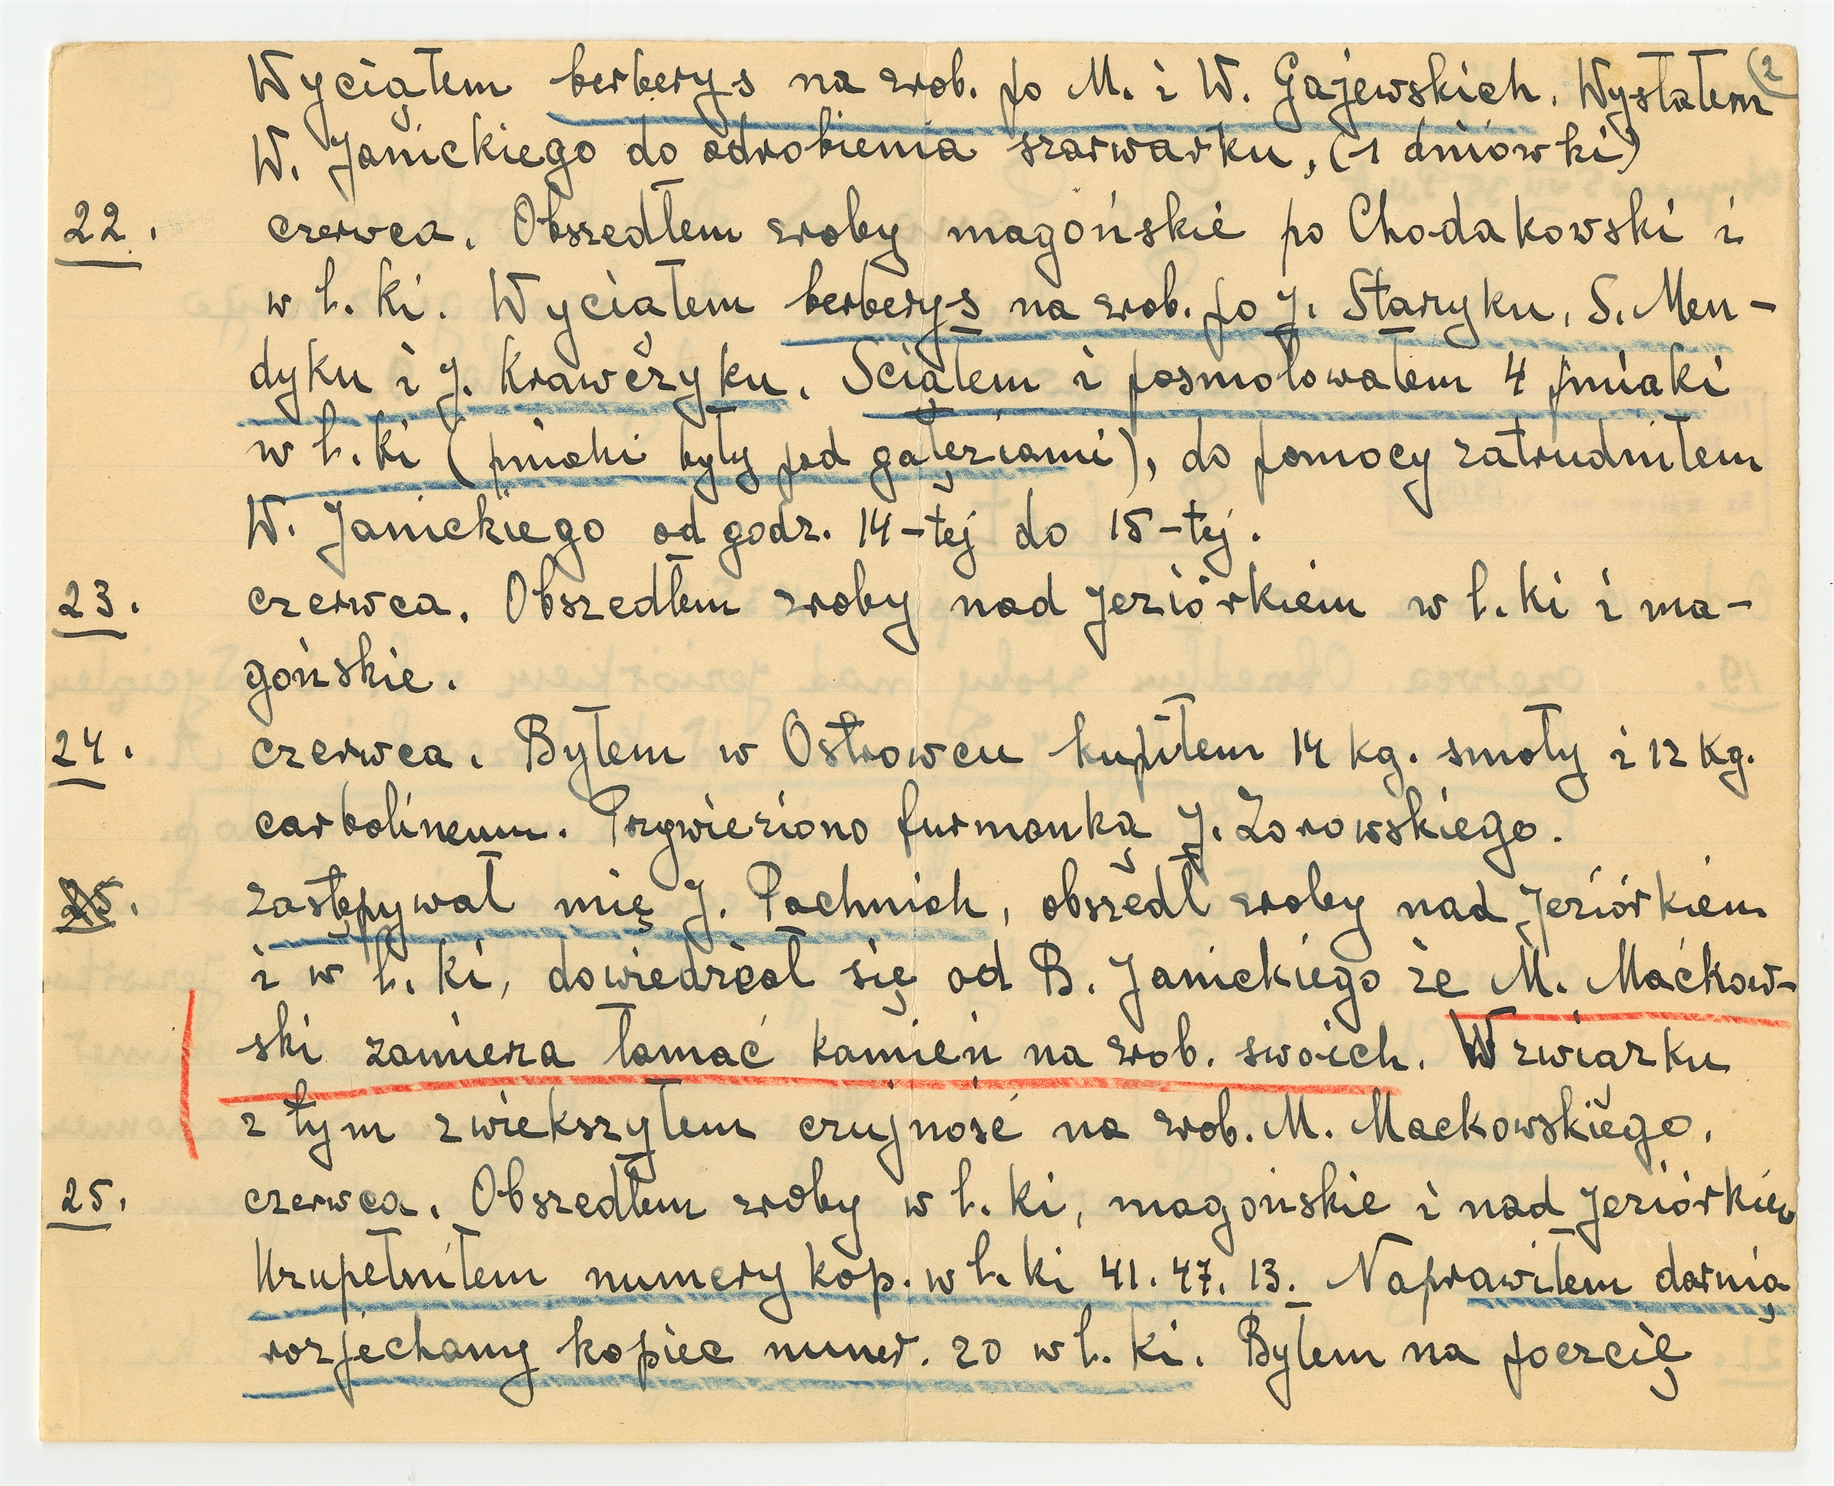 Wyciąłem berberys na zrob. po M. i W. Gajewskich. Wysłałem (2
W. Janickiego do odrobienia szarwarku, (1 dniówki)
22. czerwca. Obszedłem zroby magońskie po Chodakowski i
w l. ki. Wyciąłem berberys na zrob. po J. Staryku, S. Men-
dyku i J. Krawczyku. Sciąłem i posmołowałem 4 pniaki
w l. ki (pniaki były pod gałęziami), do pomocy zatrudniłem
W. Janickiego od godz. 14-tej do 15-tej.
23. czerwca. Obszedłem zroby nad Jeziórkiem w l. ki i ma-
gońskie.
24. czerwca. Byłem w Ostrowcu kupiłem 14 kg. smoły i 12 kg.
carbolineum. Przywieziono furmanką J. Żorowskiego.
25. zastępywał mię J. Pachniak, obszedł zroby nad Jeziórkiem
i w l. ki, dowiedział się od B. Janickiego że M. Maćkow-
ski zamierza łamać kamień na zrob. swoich. W zwiazku
z tym zwiekszyłem czujność na zrob. M. Mackowskiego.
25. czerwca. Obszedłem zroby w l. ki, magońskie i nad Jeziórkiem
Uzupełniłem numery kop. w l. ki 41. 47. 13. Naprawiłem darnią
rozjechany kopiec numer. 20 w l. ki. Byłem na poczcię